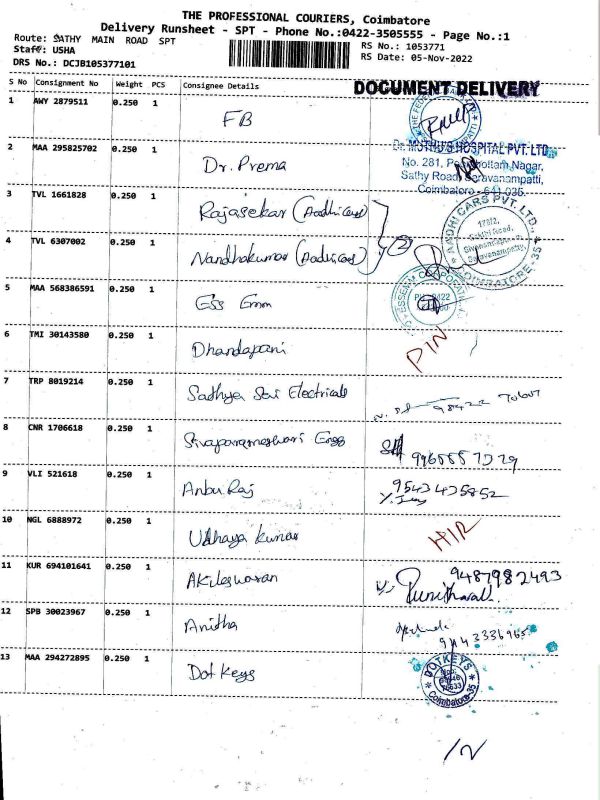 THE PROFESSIONAL COURIERS, Coimbatore
Delivery Runsheet - SPT - Phone No.:0422-3505555 - Page No.:1
Route: SATHY MAIN ROAD SPT
RS No.: 1053771
Staff: USHA
RS Date: 05-Nov-2022
DRS No.: DCJB105377101
DOCUMENT DELIVERY
S No Consignment No Weight PCS Consignee Details
1 AWY 2879511 0.250 1 FB
2 MAA 295825702 0.250 1 Dr. Prema
Dr. MUTHU'S HOSPITAL PVT. LTD.
No. 281,
Nagar,
Sathy Road, Saravanampatti,
Coimbatore - 641 035.
3 TVL 1661828 0.250 1 Rajasekar (Aadhi Cars)
4 TVL 6307002 0.250 1 Nandhakumar (Aadhi Cars) 2
AADHI CARS PVT. LTD.,
COIMBATORE-35
5 MAA 568386591 0.250 1 Ess Emm
6 TMI 30143580 0.250 1 Dhandapani PIN
7 TRP 8019214 0.250 1 Sathya Sai Electricals 98422
8 CNR 1706618 0.250 1 Sivaparameshwari Engg
9 VLI 521618 0.250 1 Anbu Raj 9543435852
10 NGL 6888972 0.250 1 Udhaya Kumar HIR
11 KUR 694101641 0.250 1 Akileswaran 9487982493
12 SPB 30023967 0.250 1 Anitha
13 MAA 294272895 0.250 1 Dot Keys
DOTKEYS
Coimbatore-35
12